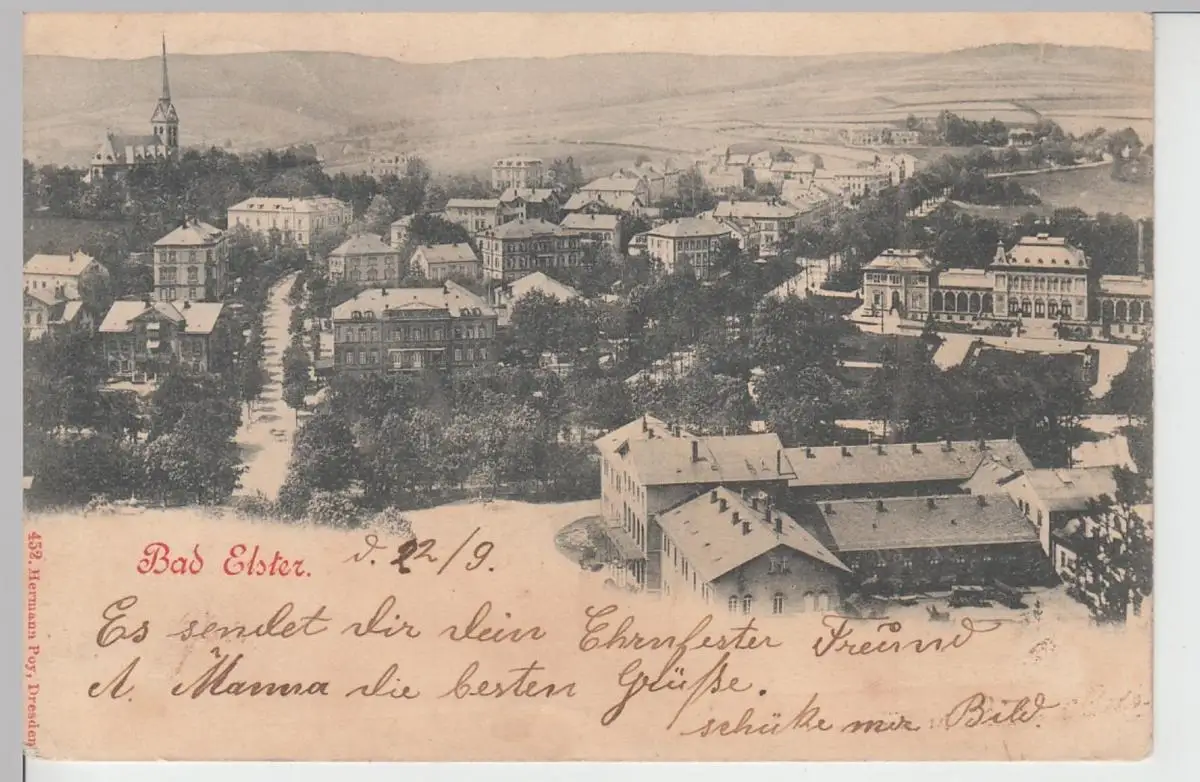 Bad Elster.
d. 22/9.
Es sendet dir dein Ehrnfester Freund
A. Manna die besten Grüße.
schüke mir Bild.
452. Hermann Poy, Dresden